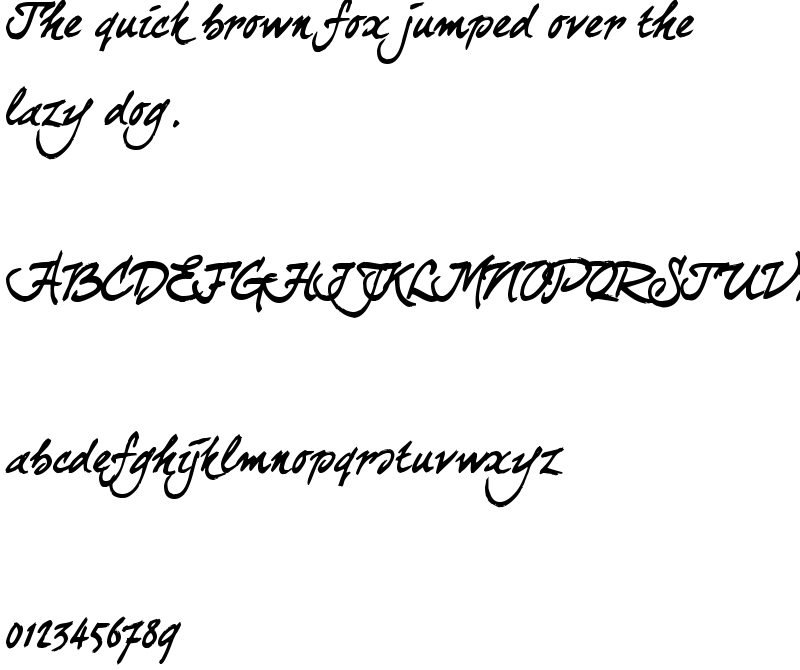 The quick brown fox jumped over the
lazy dog.
ABCDEFGHIJKLMNOPQRSTUV
abcdefghijklmnopqrstuvwxyz
0123456789